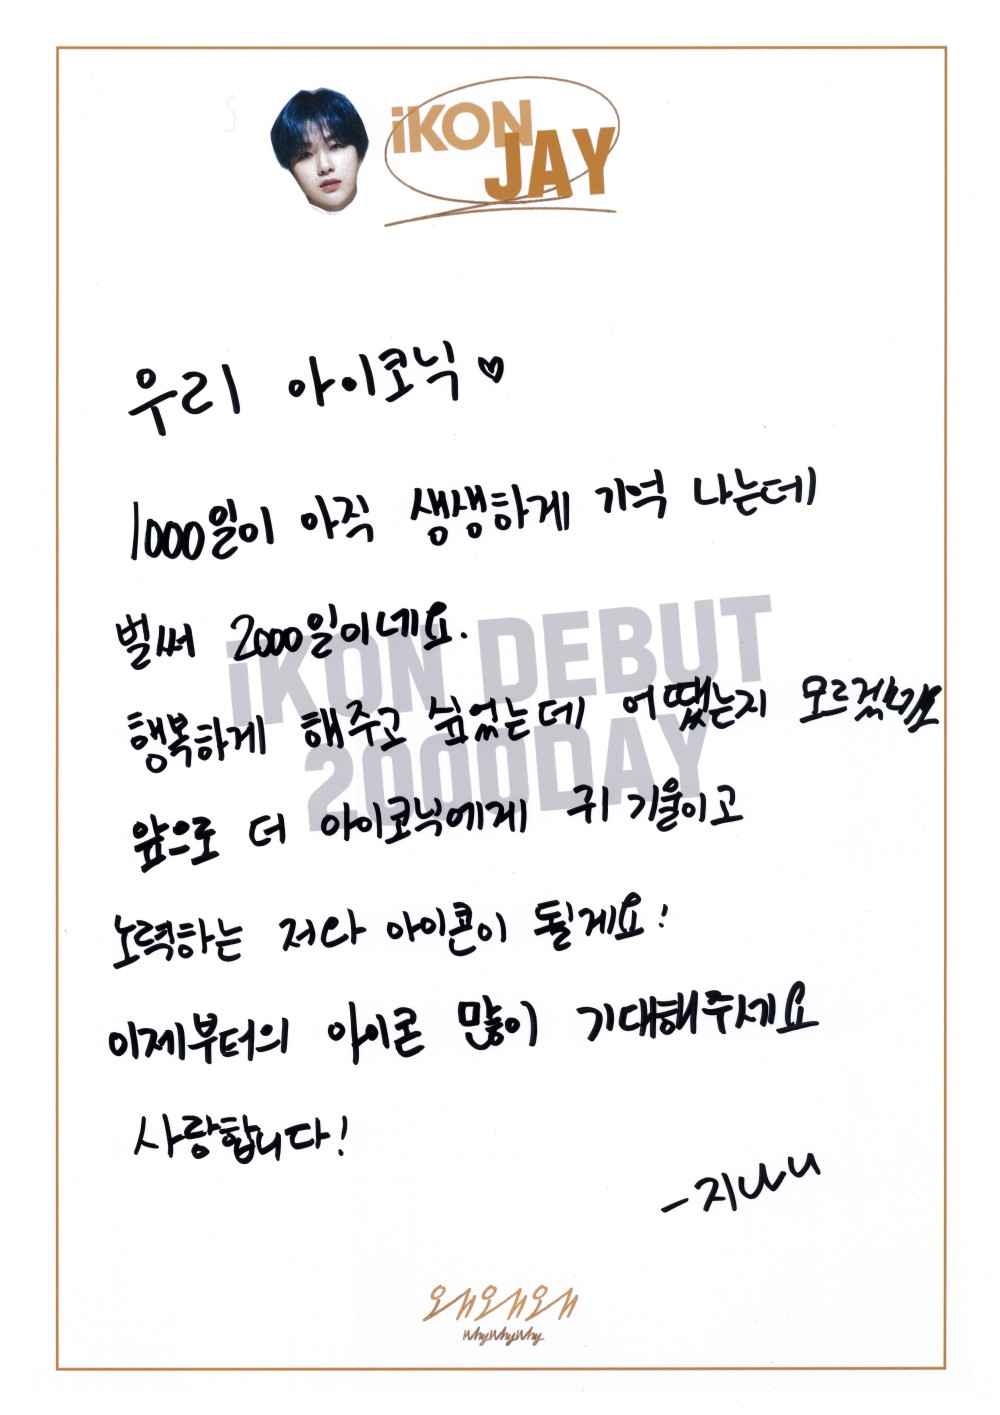 iKON
JAY
우리 아이코닉♡
1000일이 아직 생생하게 기억 나는데
벌써 2000일이네요.
iKON DEBUT
2000DAY
행복하게 해주고 싶었는데 어땠는지 모르겠네요
앞으로 더 아이코닉에게 귀 기울이고
노력하는 저와 아이콘이 될게요!
이제부터의 아이콘 많이 기대해주세요
사랑합니다!
왜왜왜
WhyWhyWhy